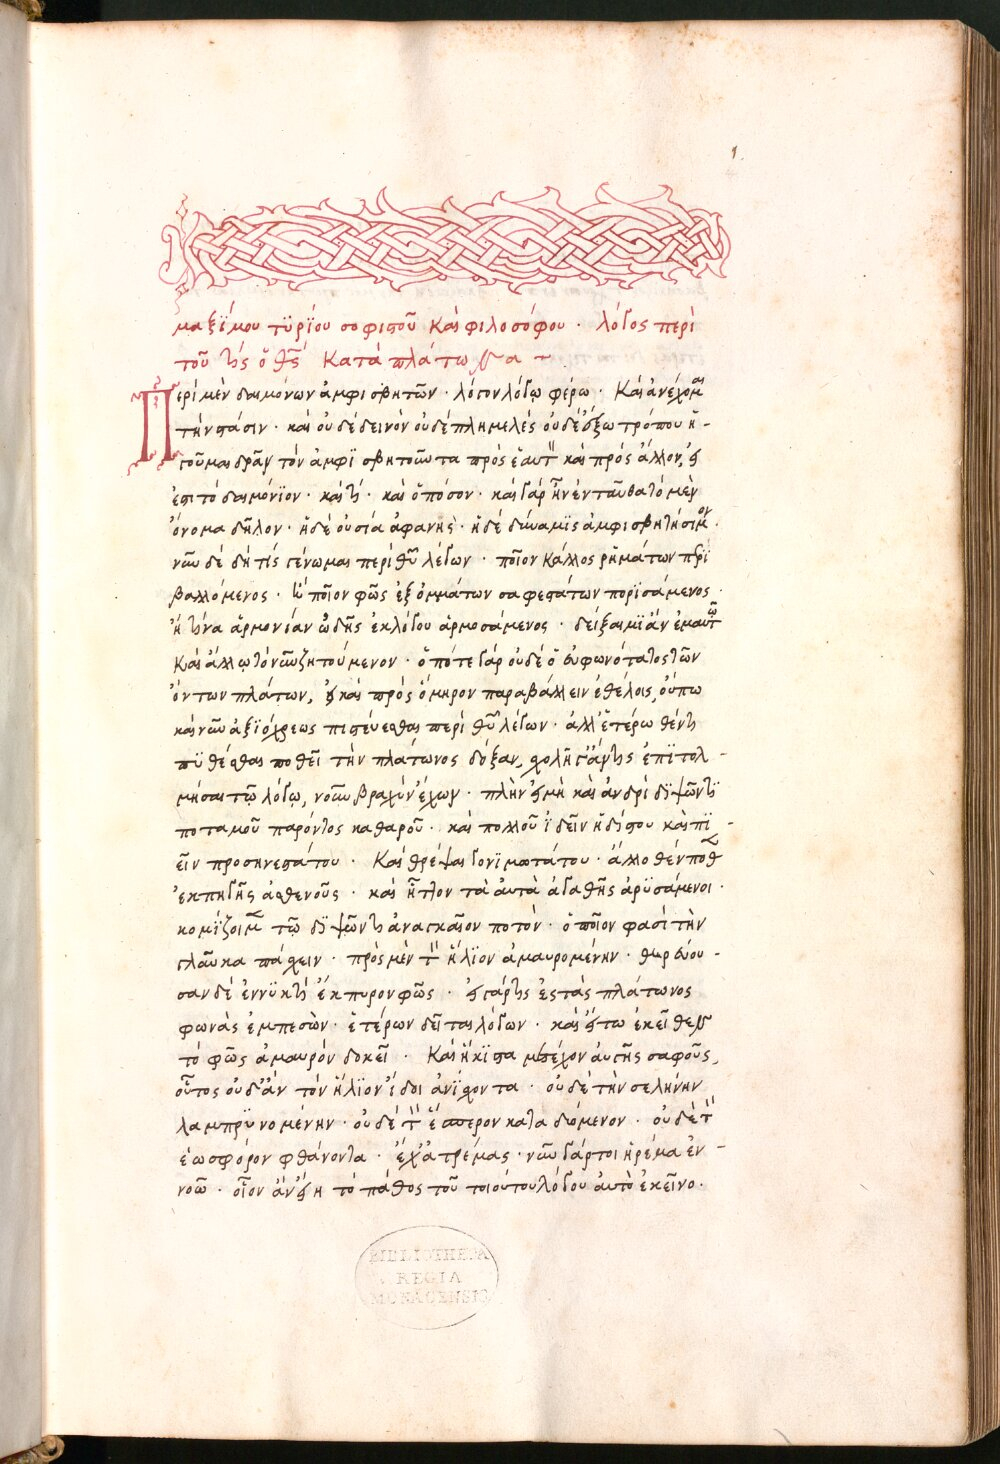 1.
μαξίμου τυρίου σοφιστοῦ καὶ φιλοσόφου · λόγος περὶ
τοῦ τίς ὁ θεὸς κατὰ πλάτωνα ~
Περὶ μὲν δαιμόνων ἀμφισβητῶν · λόγον λόγῳ φέρω · Καὶ ἀνέχομαι
τὴν στάσιν · καὶ οὐδὲ δεινὸν οὐδὲ πλημελὲς οὐδὲ ἔξω τρόπου ἡ -
γοῦμαι δρᾷν τὸν ἀμφϊσβητοῦντα πρὸς ἑαυτὸν καὶ πρὸς ἄλλον, εἰ
ἔστι τὸ δαιμόνϊον · καὶ τί · καὶ ὁπόσον · καὶ γὰρ ἦν ἐνταῦθα τὸ μὲν
ὄνομα δῆλον · ἡ δὲ οὐσία ἀφανὴς · ἡ δὲ δύναμϊς ἀμφισβητήσιμον ·
νῦν δὲ δὴ τίς γένωμαι περὶ θεοῦ λέγων · ποῖον κάλλος ρημάτων περϊ
βαλλόμενος · ἢ ποῖον φῶς ἐξ ὀμμάτων σαφεστάτων πορϊσάμενος ·
ἢ τίνα ἁρμονίαν ὠδῆς ἐκ λόγου ἁρμοσάμενος · δείξαιμϊ ἂν ἐμαυτῶ
καὶ ἄλλω τὸ νῦν ζητούμενον · ὁπότε γὰρ οὐδὲ ὁ εὐφωνότατος τῶν
ὄντων πλάτων, εἰ καὶ πρὸς ὅμηρον παραβάλλειν ἐθέλοις, οὔπω
καὶ νῦν ἀξϊόχρεως πιστεύεσθαι περὶ θεοῦ λέγων · ἀλλ' ἑτέρωθέν τις
πϋθέσθαι ποθεῖ τὴν πλάτωνος δόξαν, σχολῇ γ' ἄν τις ἐπϊτολ -
μήσαι τῷ λόγῳ, νοῦν βραχὺν ἔχων · πλὴν εἰ μὴ καὶ ἀνδρὶ δϊψῶντϊ
ποταμοῦ παρόντος καθαροῦ · καὶ πολλοῦ ϊδεῖν ἡδίστου καὶ πϊ -
εῖν προσηνεστάτου · Καὶ θρέψαι γονϊμωτάτου · ἄλλοθέν ποθεν
ἐκ πηγῆς ἀσθενοῦς · καὶ ἧττον τὰ αὐτὰ ἀγαθῆς ἀρϋσάμενοι ·
κομίζοιμεν τῷ δϊψῶντι ἀναγκαῖον ποτὸν · ὁποῖον φασὶ τὴν
γλαῦκα πάσχειν · πρὸς μὲν τὸν ἥλϊον ἀμαυρομένην · θηρεύου -
σαν δὲ ἐν νϋκτὶ ἔκπυρον φῶς · εἰ γάρ τις ἐς τὰς πλάτωνος
φωνὰς ἐμπεσὼν · ἑτέρων δεῖται λόγων · καὶ εἴ τω ἐκεῖθεν
τὸ φῶς ἀμαυρὸν δοκεῖ · Καὶ ἥκϊστα μετέχον αὐγῆς σαφοῦς,
οὗτος οὐδ' ἂν τὸν ἥλϊον ἴδοι ἀνϊσχοντα · οὐδὲ τὴν σελήνην
λαμπρϋνομένην · οὐδὲ τὸν ἕσπερον καταδυόμενον · οὐδὲ τὸν
ἑωσφόρον φθάνοντα · ἔχ' ἀτρέμας · νῦν γάρ τοι ἠρέμα ἐν -
νοῶ · οἷον ἂν εἴη τὸ πάθος τοῦ τοιούτου λόγου αὐτὸ ἐκεῖνο ·
BIBLIOTHECA
REGIA
MONACENSIS